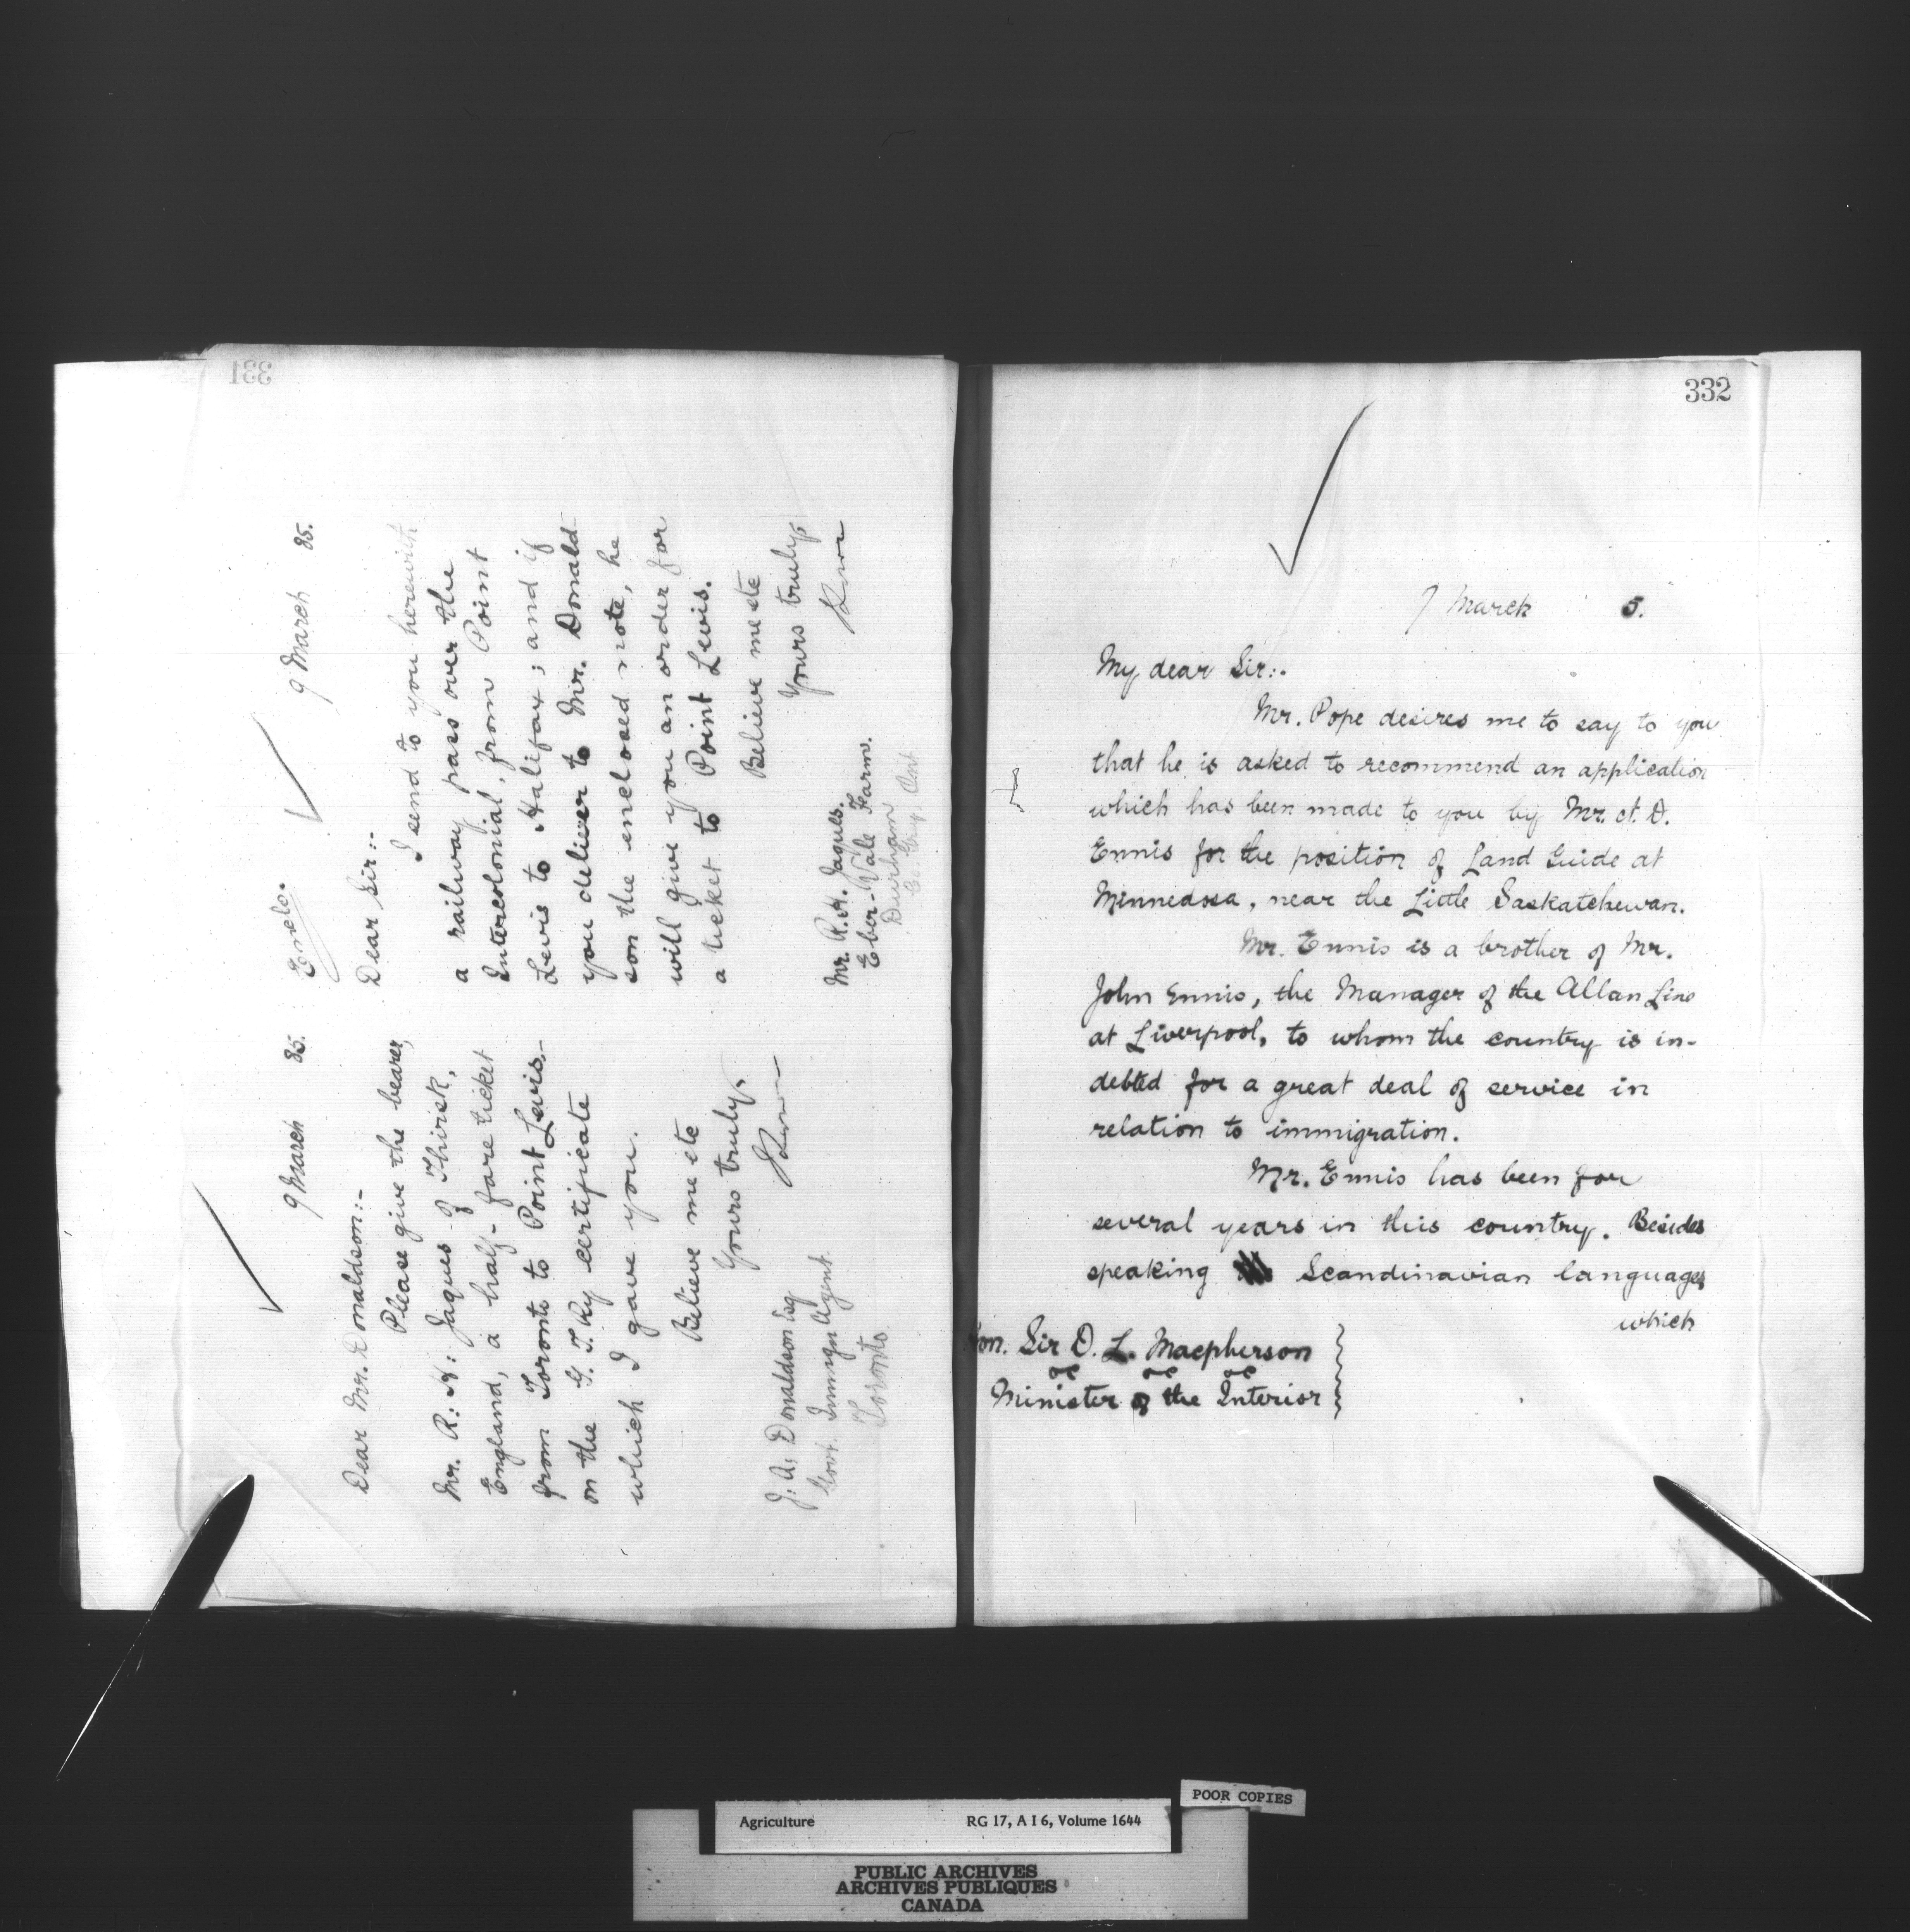 331
9 March 85.
Dear Mr. Donaldson:-
Please give the bearer,
Mr. R. H. Jaques of Thirsk,
England, a half-fare ticket
from Toronto to Point Levis,-
on the G. T. Ry certificate
which I gave you.
Believe me etc
Yours truly,
J. A. Donaldson Esq
Govt. Immign Agent.
Toronto
Enclo.
9 March 85.
Dear Sir:-
I send to you herewith
a railway pass over the
Intercolonial, from Point
Levis to Halifax; and if
you deliver to Mr. Donald-
son the enclosed note, he
will give you an order for
a ticket to Point Levis.
Believe me etc
Yours truly,
Mr. R. H. Jaques.
Eber-Vale Farm.
Durham
Co. Grey, Ont
332
7 March 5.
My dear Sir:-
Mr. Pope desires me to say to you
that he is asked to recommend an application
which has been made to you by Mr. A. D.
Ennis for the position of Land Guide at
Minnedosa, near the Little Saskatchewan.
Mr. Ennis is a brother of Mr.
John Ennis, the Manager of the Allan Line
at Liverpool, to whom the country is in-
debted for a great deal of service in
relation to immigration.
Mr. Ennis has been for
several years in this country. Besides
speaking Scandinavian languages
which
Hon. Sir D. L. Macpherson
Minister of the Interior
POOR COPIES
Agriculture RG 17, A I 6, Volume 1644
PUBLIC ARCHIVES
ARCHIVES PUBLIQUES
CANADA